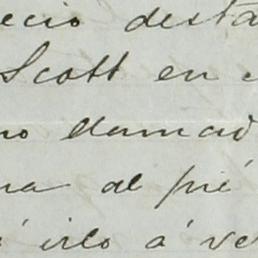 ecio desta
Scott en
no llamad
na al pié
irlo á ve